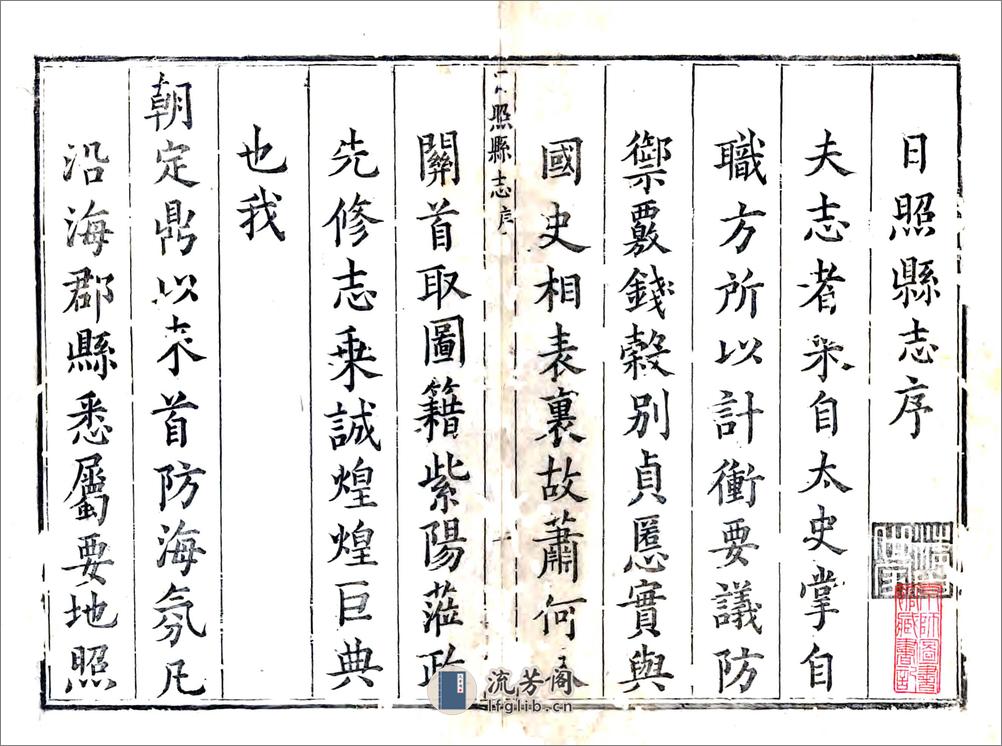 日照縣志序
夫志者采自太史掌自
職方所以計衝要議防
禦覈錢穀別貞慝實與
國史相表裏故蕭何入
關首取圖籍紫陽蒞政
照縣志 序
一
先修志乘誠煌煌巨典
也我
朝定鼎以来首防海氛凡
沿海郡縣悉屬要地照
流芳阁
lfglib.cn